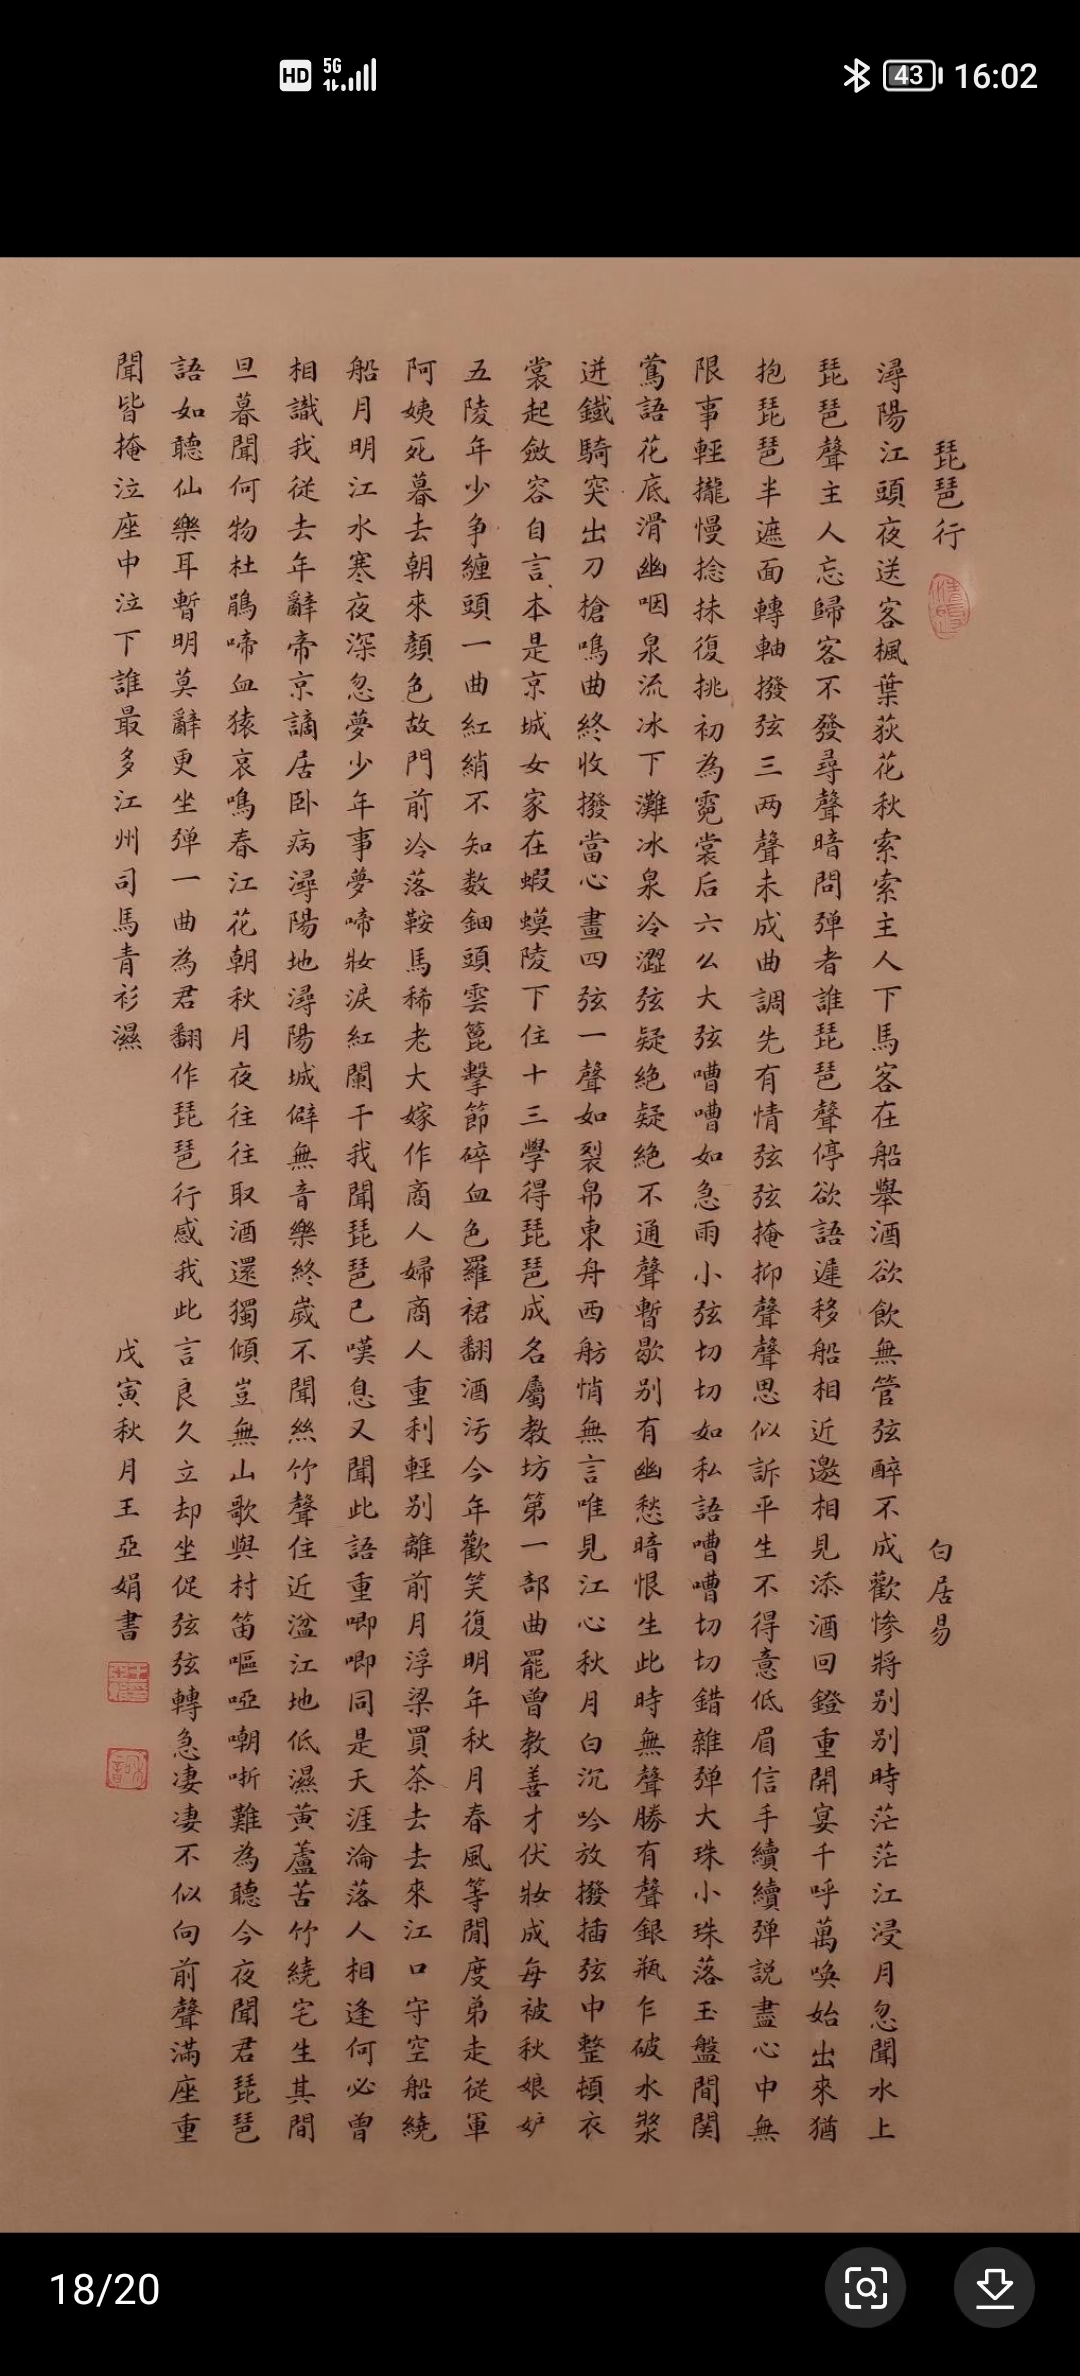 HD 5G 43 16:02
琵琶行
白居易
潯陽江頭夜送客楓葉荻花秋索索主人下馬客在船舉酒欲飲無管弦醉不成歡慘將别别時茫茫江浸月忽聞水上
琵琶聲主人忘歸客不發尋聲暗問弹者誰琵琶聲停欲語遲移船相近邀相見添酒回鐙重開宴千呼萬喚始出來猶
抱琵琶半遮面轉軸撥弦三两聲未成曲調先有情弦弦掩抑聲聲思似訴平生不得意低眉信手續續弹説盡心中無
限事輕攏慢捻抹復挑初為霓裳后六么大弦嘈嘈如急雨小弦切切如私語嘈嘈切切錯雜弹大珠小珠落玉盤間関
鶯語花底滑幽咽泉流冰下灘冰泉冷澀弦疑絶疑絶不通聲暫歇别有幽愁暗恨生此時無聲勝有聲銀瓶乍破水漿
迸鐵騎突出刀槍鳴曲終收撥當心畫四弦一聲如裂帛東舟西舫悄無言唯見江心秋月白沉吟放撥插弦中整頓衣
裳起斂容自言本是京城女家在蝦蟆陵下住十三學得琵琶成名屬教坊第一部曲罷曾教善才伏妝成每被秋娘妒
五陵年少争纏頭一曲紅綃不知数鈿頭雲篦擊節碎血色羅裙翻酒污今年歡笑復明年秋月春風等閒度弟走從軍
阿姨死暮去朝來顏色故門前冷落鞍馬稀老大嫁作商人婦商人重利輕别離前月浮梁買茶去去來江口守空船繞
船月明江水寒夜深忽夢少年事夢啼妝淚紅闌干我聞琵琶已嘆息又聞此語重唧唧同是天涯淪落人相逢何必曾
相識我從去年辭帝京謫居卧病潯陽地潯陽城僻無音樂終歲不聞絲竹聲住近湓江地低濕黄蘆苦竹繞宅生其間
旦暮聞何物杜鵑啼血猿哀鳴春江花朝秋月夜往往取酒還獨傾豈無山歌與村笛嘔啞嘲哳難為聽今夜聞君琵琶
語如聽仙樂耳暫明莫辭更坐弹一曲為君翻作琵琶行感我此言良久立却坐促弦弦轉急凄凄不似向前聲滿座重
聞皆掩泣座中泣下誰最多江州司馬青衫濕
戊寅秋月王亞娟書
18/20